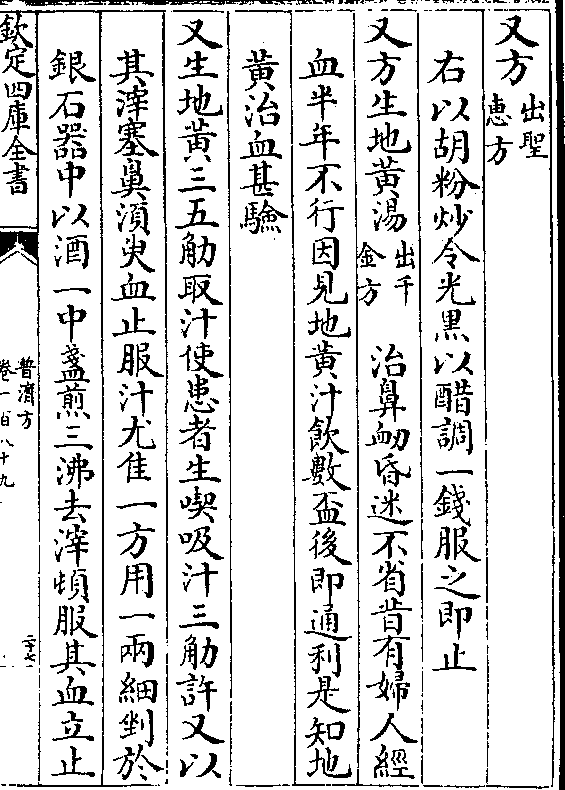 又方出聖惠方
右以胡粉炒令光黑以醋調一錢服之即止
又方生地黃湯出千金方 治鼻衂昏迷不省昔有婦人經
血半年不行因見地黃汁飲數盃後即通利是知地
黃治血甚驗
又生地黃三五觔取汁使患者生喫吸汁三觔許又以
其滓塞鼻須臾血止服汁尤佳一方用一兩細剉於
銀石器中以酒一中盞煎三沸去滓頓服其血立止
欽定四庫全書
普濟方
卷一百八十九
二十七